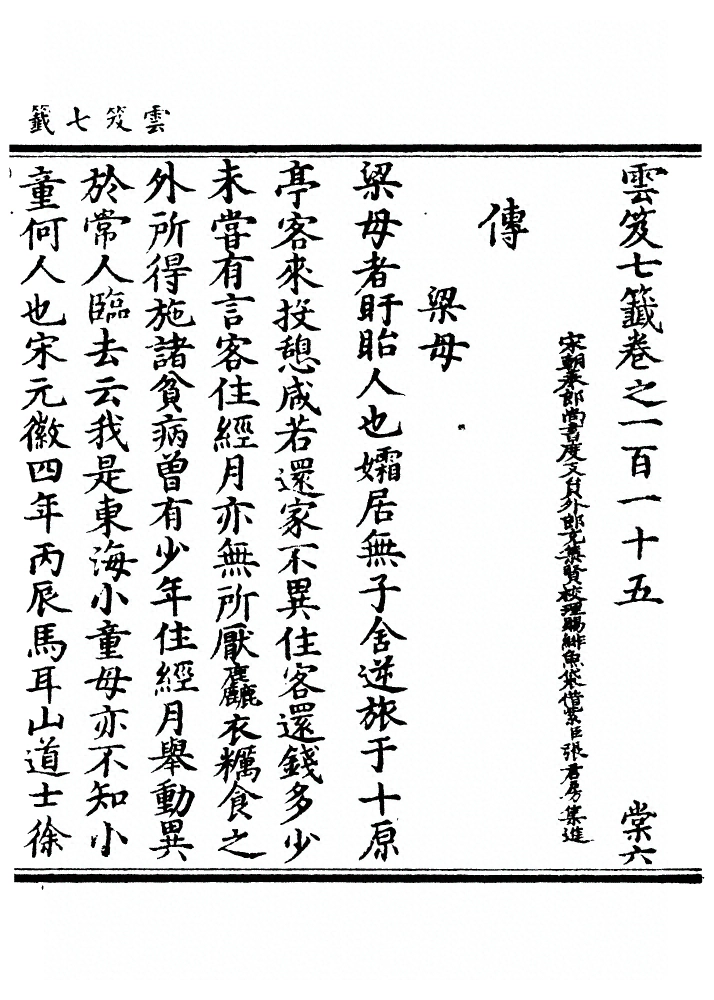 雲笈七籤
雲笈七籤卷之一百一十五 棠六
宋朝奉郎尚書度支員外郎充集賢校理賜緋魚袋借紫臣張君房集進
傳
梁母
梁母者盱眙人也孀居無子舍逆旅于十原
亭客來投憩咸若還家不異住客還錢多少
未嘗有言客住經月亦無所厭麤衣糲食之
外所得施諸貧病曾有少年住經月舉動異
於常人臨去云我是東海小童母亦不知小
童何人也宋元徽四年丙辰馬耳山道士徐